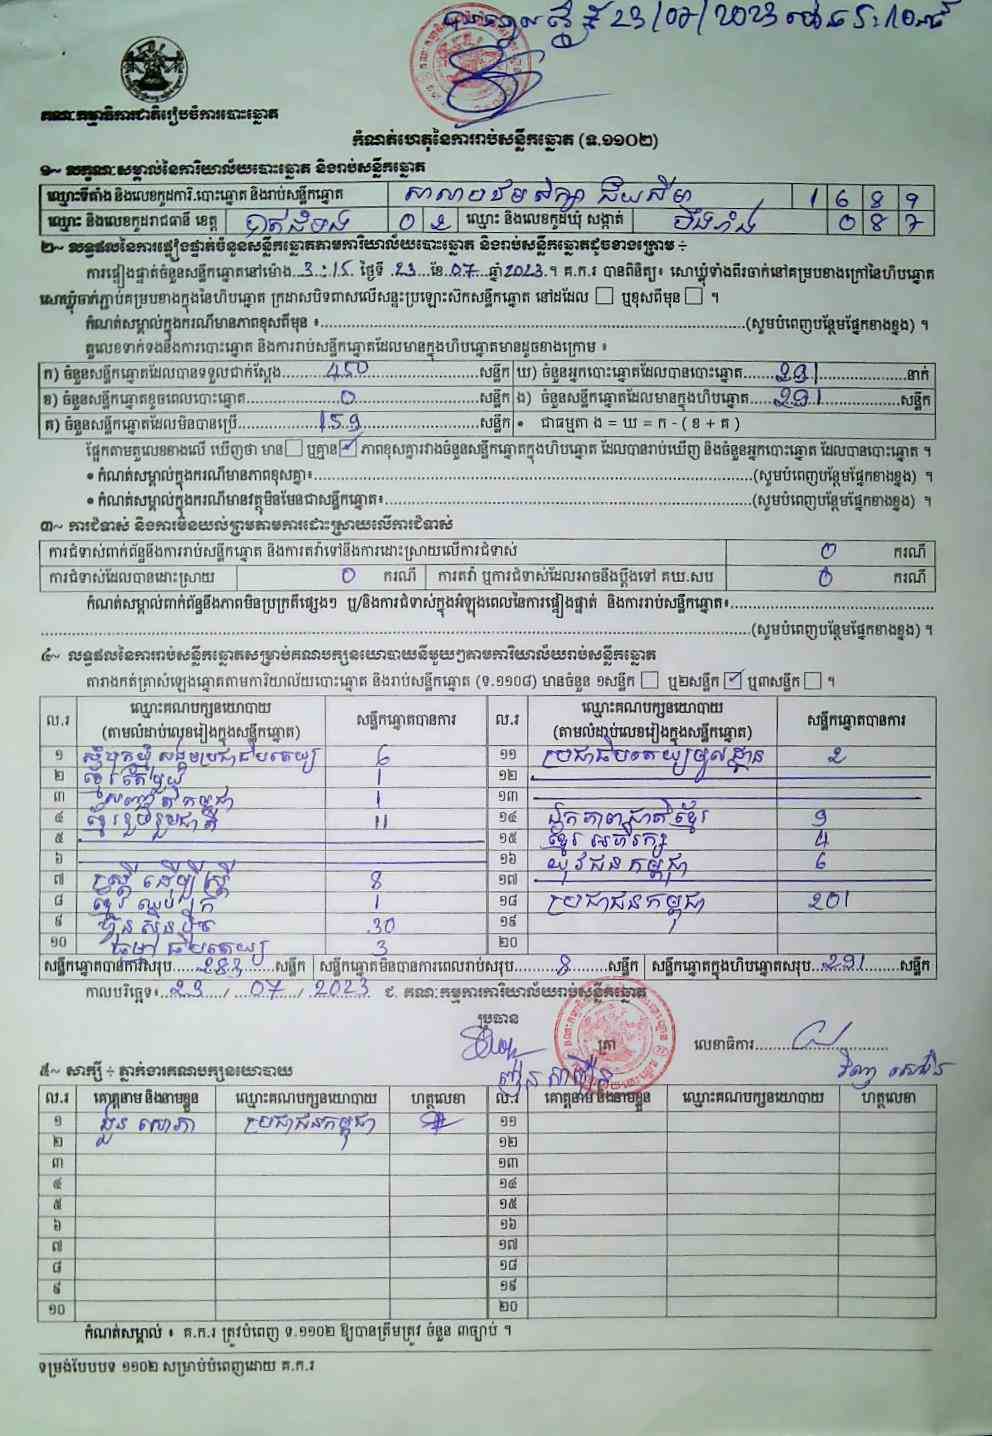 បានទទួល ថ្ងៃទី 23/07/2023 ម៉ោង 5:10
គណៈកម្មាធិការជាតិរៀបចំការបោះឆ្នោត
កំណត់ហេតុនៃការរាប់សន្លឹកឆ្នោត (ទ.១១០២)
១~ លក្ខណៈសម្គាល់នៃការិយាល័យបោះឆ្នោត និងរាប់សន្លឹកឆ្នោត
ឈ្មោះទីតាំង និងលេខកូដការិ.បោះឆ្នោត និងរាប់សន្លឹកឆ្នោត សាលាបឋមសិក្សា ជ័យសីមា 1 6 8 9
ឈ្មោះ និងលេខកូដរាជធានី ខេត្ត បាត់ដំបង 0 2 ឈ្មោះ និងលេខកូដឃុំ សង្កាត់ 0 8 7
២~ លទ្ធផលនៃការផ្ទៀងផ្ទាត់ចំនួនសន្លឹកឆ្នោតតាមការិយាល័យបោះឆ្នោត និងរាប់សន្លឹកឆ្នោតដូចខាងក្រោម ÷
ការផ្ទៀងផ្ទាត់ចំនួនសន្លឹកឆ្នោតនៅម៉ោង 3:15 ថ្ងៃទី 23 ខែ 07 ឆ្នាំ 2023 ។ គ.ក.រ បានពិនិត្យ៖ សោឃ្លុំទាំងពីរចាក់នៅគម្របខាងក្រៅនៃហិបឆ្នោត
សោឃ្លុំចាក់ភ្ជាប់គម្របខាងក្នុងនៃហិបឆ្នោត ក្រដាសបិទពាសលើសន្ទះប្រឡោះស៊កសន្លឹកឆ្នោត នៅដដែល ☐ ឬខុសពីមុន ☐ ។
កំណត់សម្គាល់ក្នុងករណីមានភាពខុសពីមុន ៖ (សូមបំពេញបន្ថែមផ្នែកខាងខ្នង) ។
តួលេខទាក់ទងនឹងការបោះឆ្នោត និងការរាប់សន្លឹកឆ្នោតដែលមានក្នុងហិបឆ្នោតមានដូចខាងក្រោម ៖
ក) ចំនួនសន្លឹកឆ្នោតដែលបានទទួលជាក់ស្តែង 450 សន្លឹក ឃ) ចំនួនអ្នកបោះឆ្នោតដែលបានបោះឆ្នោត 291 នាក់
ខ) ចំនួនសន្លឹកឆ្នោតខូចពេលបោះឆ្នោត 0 សន្លឹក ង) ចំនួនសន្លឹកឆ្នោតដែលមានក្នុងហិបឆ្នោត 291 សន្លឹក
គ) ចំនួនសន្លឹកឆ្នោតដែលមិនបានប្រើ 159 សន្លឹក • ជាធម្មតា ង = ឃ = ក - ( ខ + គ )
ផ្អែកតាមតួលេខខាងលើ ឃើញថា មាន ☐ ឬគ្មាន ☑ ភាពខុសគ្នារវាងចំនួនសន្លឹកឆ្នោតក្នុងហិបឆ្នោត ដែលបានរាប់ឃើញ និងចំនួនអ្នកបោះឆ្នោត ដែលបានបោះឆ្នោត ។
• កំណត់សម្គាល់ក្នុងករណីមានភាពខុសគ្នា៖ (សូមបំពេញបន្ថែមផ្នែកខាងខ្នង) ។
• កំណត់សម្គាល់ក្នុងករណីមានវត្ថុមិនមែនជាសន្លឹកឆ្នោត៖ (សូមបំពេញបន្ថែមផ្នែកខាងខ្នង) ។
៣~ ការជំទាស់ និងការមិនយល់ព្រមតាមការដោះស្រាយលើការជំទាស់
ការជំទាស់ពាក់ព័ន្ធនឹងការរាប់សន្លឹកឆ្នោត និងការតវ៉ាទៅនឹងការដោះស្រាយលើការជំទាស់ 0 ករណី
ការជំទាស់ដែលបានដោះស្រាយ 0 ករណី ការតវ៉ា ឬការជំទាស់ដែលអាចនឹងប្តឹងទៅ គឃ.សប 0 ករណី
កំណត់សម្គាល់ពាក់ព័ន្ធនឹងភាពមិនប្រក្រតីផ្សេងៗ ឬ/និងការជំទាស់ក្នុងអំឡុងពេលនៃការផ្ទៀងផ្ទាត់ និងការរាប់សន្លឹកឆ្នោត៖
(សូមបំពេញបន្ថែមផ្នែកខាងខ្នង) ។
៤~ លទ្ធផលនៃការរាប់សន្លឹកឆ្នោតសម្រាប់គណបក្សនយោបាយនីមួយៗតាមការិយាល័យរាប់សន្លឹកឆ្នោត
តារាងកត់ត្រាសំឡេងឆ្នោតតាមការិយាល័យបោះឆ្នោត និងរាប់សន្លឹកឆ្នោត (ទ.១១០៨) មានចំនួន ១សន្លឹក ☐ ឬ២សន្លឹក ☑ ឬ៣សន្លឹក ☐ ។
ល.រ ឈ្មោះគណបក្សនយោបាយ (តាមលំដាប់លេខរៀងក្នុងសន្លឹកឆ្នោត) សន្លឹកឆ្នោតបានការ ល.រ ឈ្មោះគណបក្សនយោបាយ (តាមលំដាប់លេខរៀងក្នុងសន្លឹកឆ្នោត) សន្លឹកឆ្នោតបានការ
១ សំបុកឃ្មុំសង្គមប្រជាធិបតេយ្យ 6 ១១ ប្រជាធិបតេយ្យមូលដ្ឋាន 2
២ ខ្មែរតែមួយ 1 ១២
៣ សញ្ជាតិកម្ពុជា 1 ១៣
៤ ខ្មែររួបរួមជាតិ 11 ១៤ ឯកភាពជាតិខ្មែរ 9
៥ ១៥ ខ្មែរអភិរក្ស 4
៦ ១៦ យុវជនកម្ពុជា 6
៧ ស្ត្រីដើម្បីស្ត្រី 8 ១៧
៨ ខ្មែរឈប់ក្រ 1 ១៨ ប្រជាជនកម្ពុជា 201
៩ ហ៊្វុនស៊ិនប៉ិច 30 ១៩
១០ ធម្មាធិបតេយ្យ 3 ២០
សន្លឹកឆ្នោតបានការសរុប 283 សន្លឹក សន្លឹកឆ្នោតមិនបានការពេលរាប់សរុប 8 សន្លឹក សន្លឹកឆ្នោតក្នុងហិបឆ្នោតសរុប 291 សន្លឹក
កាលបរិច្ឆេទ៖ 23 / 07 / 2023 ជ. គណៈកម្មការការិយាល័យរាប់សន្លឹកឆ្នោត
ប្រធាន
ត្រា លេខាធិការ
៥~ សាក្សី ÷ ភ្នាក់ងារគណបក្សនយោបាយ
ល.រ គោត្តនាម និងនាមខ្លួន ឈ្មោះគណបក្សនយោបាយ ហត្ថលេខា ល.រ គោត្តនាម និងនាមខ្លួន ឈ្មោះគណបក្សនយោបាយ ហត្ថលេខា
១ ដួន សោភា ប្រជាជនកម្ពុជា ១១
២ ១២
៣ ១៣
៤ ១៤
៥ ១៥
៦ ១៦
៧ ១៧
៨ ១៨
៩ ១៩
១០ ២០
កំណត់សម្គាល់ ៖ គ.ក.រ ត្រូវបំពេញ ទ.១១០២ ឱ្យបានត្រឹមត្រូវ ចំនួន ៣ច្បាប់ ។
ទម្រង់បែបបទ ១១០២ សម្រាប់បំពេញដោយ គ.ក.រ